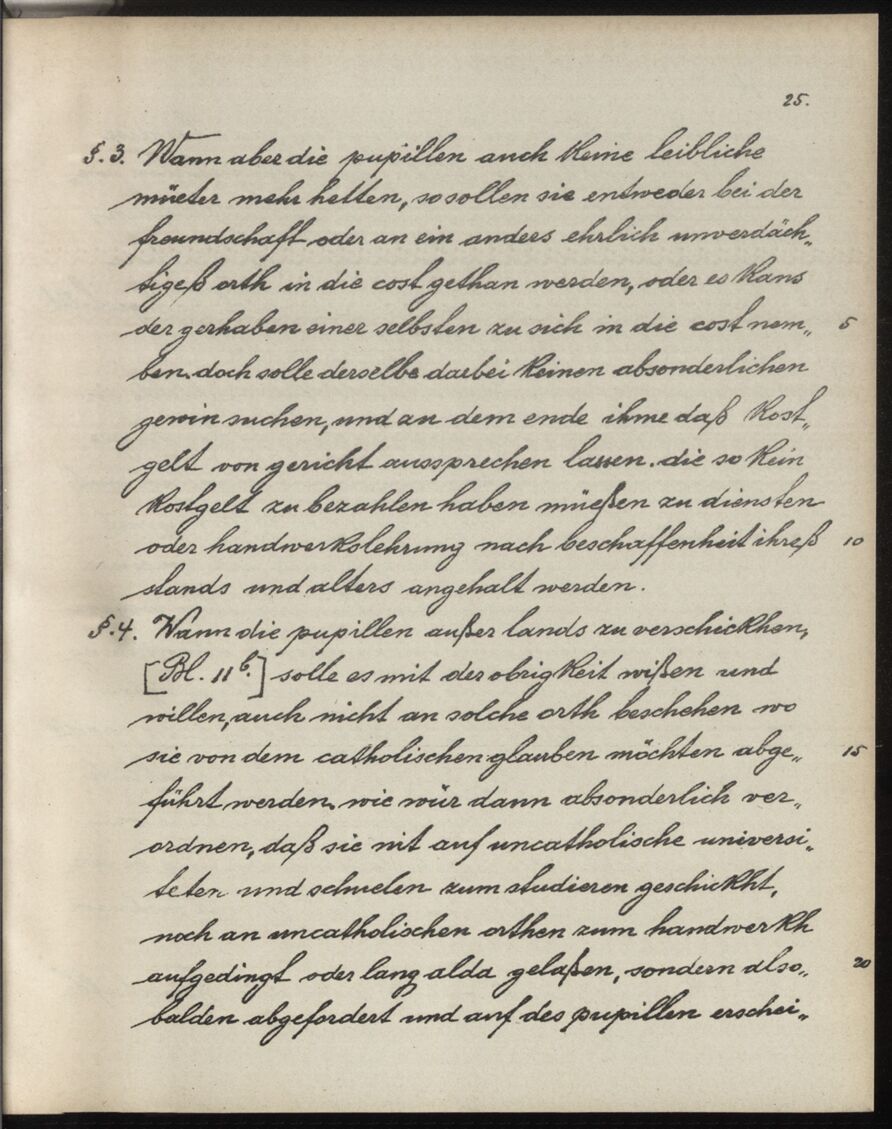 25.
§. 3. Wann aber die pupillen auch keine leibliche
müeter mehr hetten, so sollen sie entweder bei der
freundschaft oder an ein anders ehrlich unverdäch„
tigeß orth in die cost gethan werden, oder es kans
der gerhaben einer selbsten zu sich in die cost nem„ 5
ben. doch solle derselbe darbei keinen absonderlichen
gewin suchen, und an dem ende ihme daß kost„
gelt von gericht aussprechen lassen. die so kein
kostgelt zu bezahlen haben müeßen zu diensten
oder handwerkslehrung nach beschaffenheit ihreß 10
stands und alters angehalt werden.
§. 4. Wann die pupillen außer lands zu verschickhen,
[Bl. 11b.] solle es mit der obrigkeit wißen und
willen, auch nicht an solche orth beschehen wo
sie von dem catholischen glauben möchten abge„ 15
führt werden. wie wür dann absonderlich ver„
ordnen, daß sie nit auf uncatholische universi„
teten und schuelen zum studieren geschickht,
noch an uncatholischen orthen zum handwerkh
aufgedingt oder lang alda gelaßen, sondern also„ 20
balden abgefordert und auf des pupillen erschei„